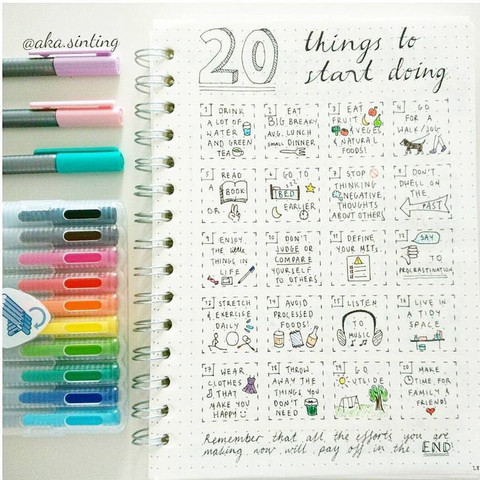 @aka.sinting
20 things to
start doing
1 DRINK
A LOT OF
WATER
AND GREEN
TEA
2 EAT
BIG BREAKY,
AVG. LUNCH
SMALL DINNER
3 EAT
FRUIT
& VEGES,
NATURAL
FOODS!
4 GO
FOR A
WALK/JOG
5 READ
A
BOOK
OR 2
6 GO TO
BED
EARLIER
7 STOP
THINKING
NEGATIVE
THOUGHTS
ABOUT OTHERS
8 DON'T
DWELL ON
THE
PAST
9 ENJOY
THE little
THINGS IN
LIFE
10 DON'T
JUDGE OR
COMPARE
YOURSELF
TO OTHERS
11 DEFINE
YOUR MITS.
12 SAY
TO
PROCRASTINATION
13 STRETCH
& EXERCISE
DAILY
14 AVOID
PROCESSED
FOODS!
15 LISTEN
TO
MUSIC
16 LIVE IN
A TIDY
SPACE
17 WEAR
CLOTHES
THAT
MAKE YOU
HAPPY
18 THROW
AWAY THE
THINGS YOU
DON'T
NEED
19 GO
OUTSIDE
20 MAKE
TIME FOR
FAMILY &
FRIENDS
Remember that all the efforts you are
making now will pay off in the END